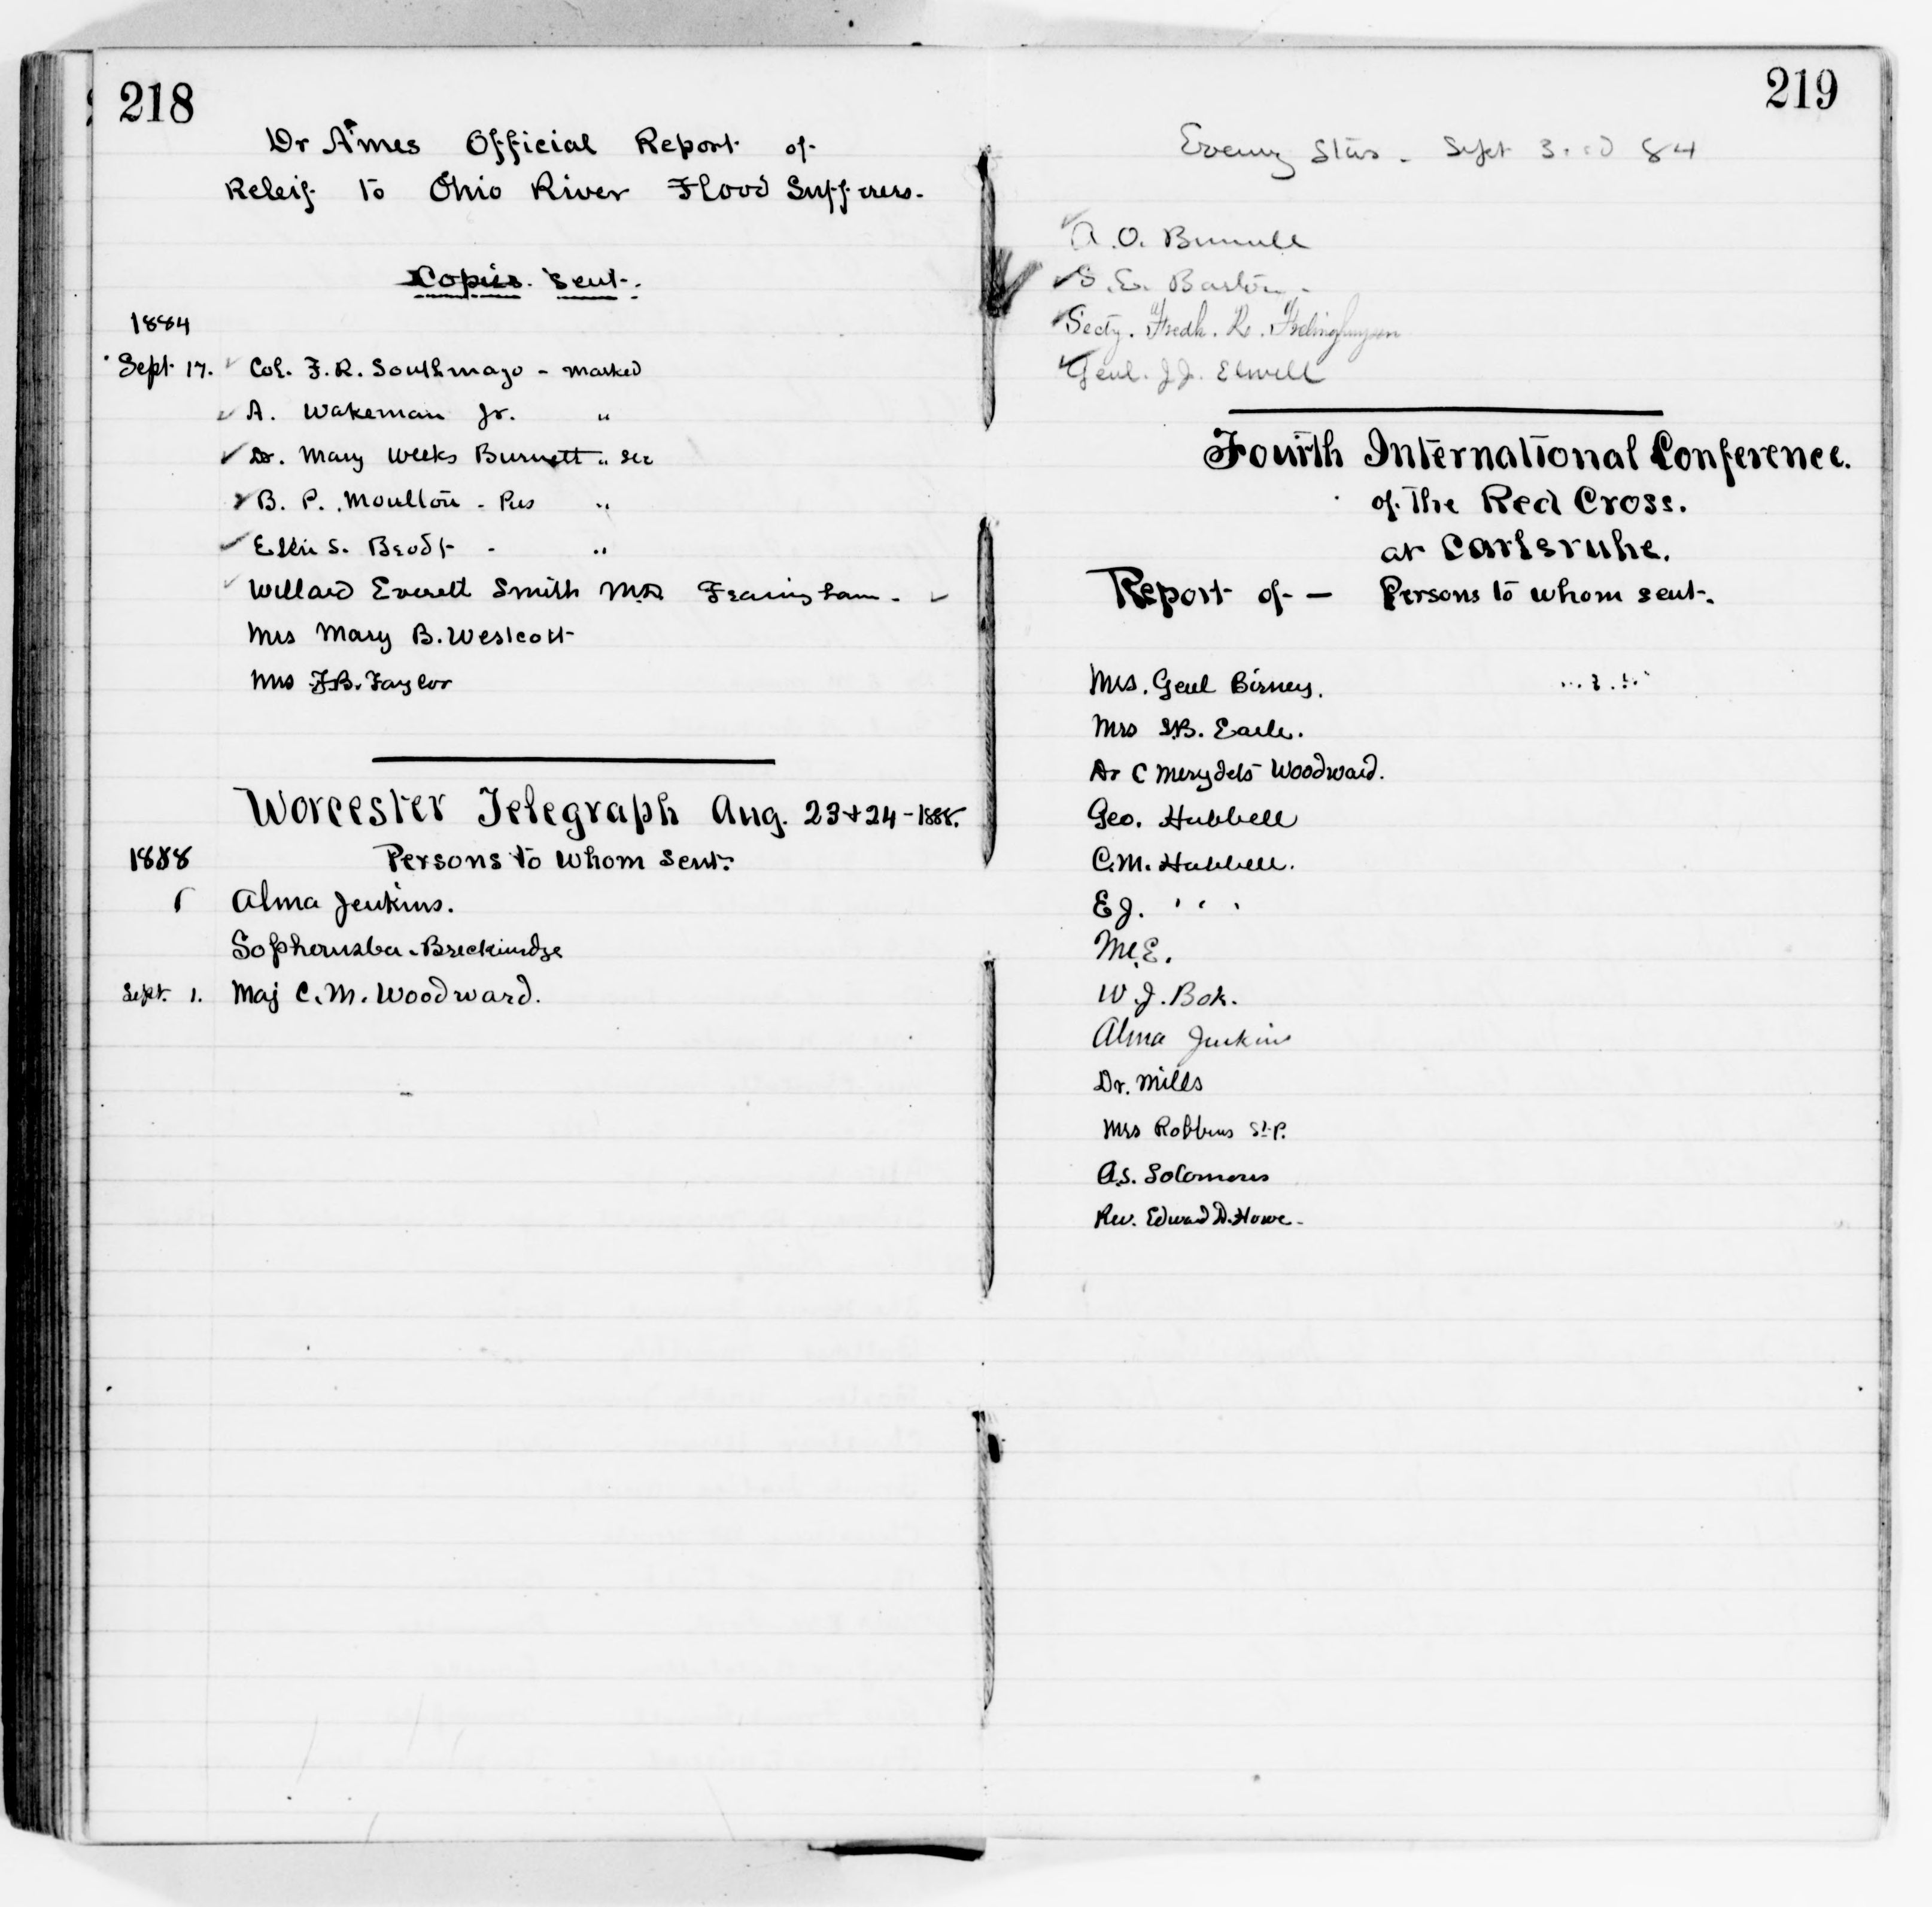 218
Dr Ames Official Report of
Releif to Ohio River Flood Sufferers.
Copies Sent.
1884
Sept 17. Col. F. R. Southmayd - Marked
A. Wakeman Jr. "
Dr. Mary Weeks Burnett " Sec
B. P. Moulton - Pres "
Ellie S. Brodt - "
Willard Everett Smith M.D. Framingham -
Mrs Mary B. Westcott
Mrs F.B. Taylor
Worcester Telegraph Aug. 23 + 24 - 1888.
1888 Persons to whom sent.
Alma Jenkins.
Sophernsba Breckinridge
Sept. 1. Maj C. M. Woodward.
219
Evening Star - Sept 3rd 84
A. O. Bunnell
S. E. Barton -
Secty. Fredk. R. Frelinghuysen
Genl. J.J. Elwell
Fourth International Conference.
of the Red Cross.
at Carlsruhe.
Report of — Persons to whom sent.
Mrs. Genl Birney.
Mrs S.B. Earle.
Dr C Woodward.
Geo. Hubbell
C.M. Hubbell.
E J. " " "
M.E.
W. J. Bok.
Alma Jenkins
Dr. Mills
Mrs Robbins St. P.
A.S. Solomons
Rev. Edward D. Howe -